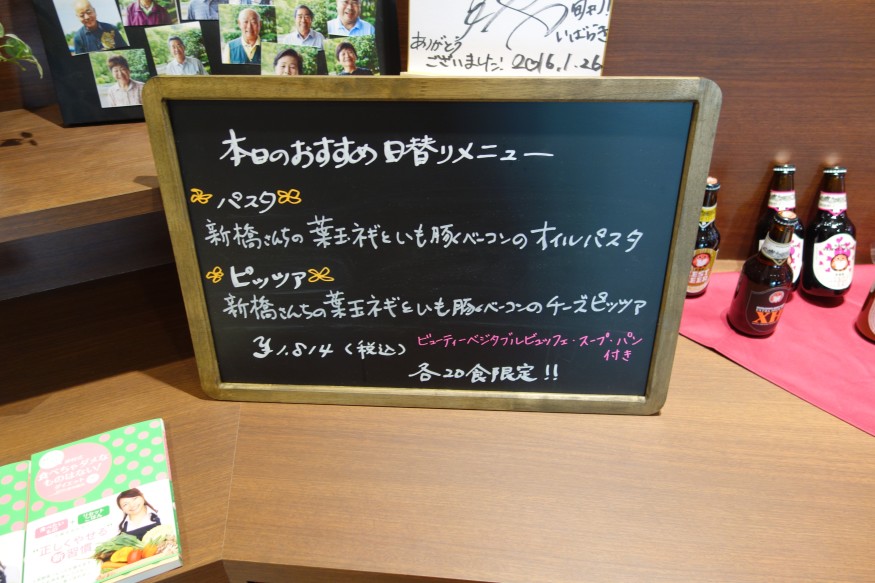 旬科!!
いばらき
ありがとう
ございました! 2016.1.26
本日のおすすめ日替りメニュー
パスタ
新橋さんちの葉玉ネギといも豚ベーコンのオイルパスタ
ピッツァ
新橋さんちの葉玉ネギといも豚ベーコンのチーズピッツァ
¥1,814 (税込)
ビューティーベジタブルビュッフェ・スープ・パン
付き
各20食限定!!
食べちゃダメな
ものはない!
ダイエット
"正しくやせる"
新習慣
XH